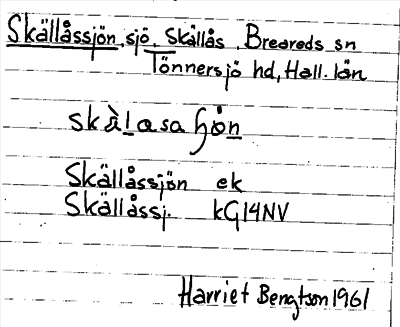 Skällåssjön, sjö, Skällås, Breareds sn
Tönnersjö hd, Hall. län
skàlasa ɧön
Skällåssjön ek
Skällåssj. kG14NV
Harriet Bengtson 1961